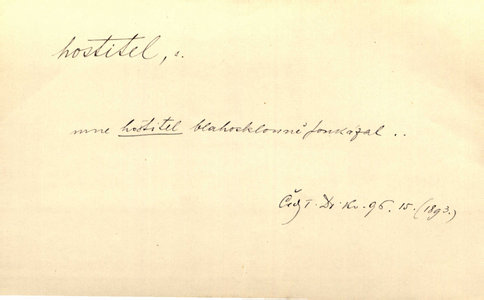 hostitel, s.
mne hostitel blahosklonně pokřál ..
Kv. 96. 15. (1893.)